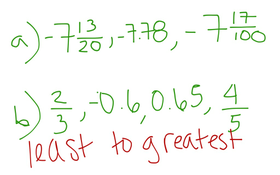 a) -7 13/20, -7.78, -7 17/100
b) 2/3, -0.6, 0.65, 4/5
least to greatest